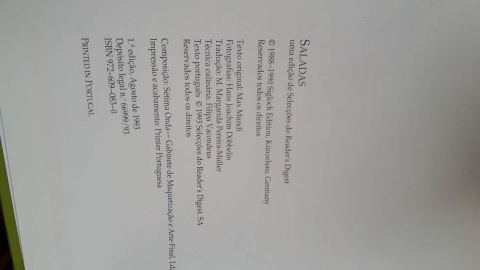 SALADAS
uma edição de Selecções do Reader's Digest
© 1988–1990 Sigloch Edition, Künzelsau, Germany
Reservados todos os direitos
Texto original: Max Mundi
Fotografias: Hans Joachim Döbbelin
Tradução: M. Margarida Pereira-Müller
Técnica culinária: Filipa Vacondeus
Texto português © 1993 Selecções do Reader's Digest, SA
Reservados todos os direitos
Composição: Sétima Onda — Gabinete de Maquetização e Arte-Final, Lda
Impressão e acabamento: Printer Portuguesa
1.ª edição, Agosto de 1993
Depósito legal n.º 66999/93
ISBN 972-609-083-0
PRINTED IN PORTUGAL